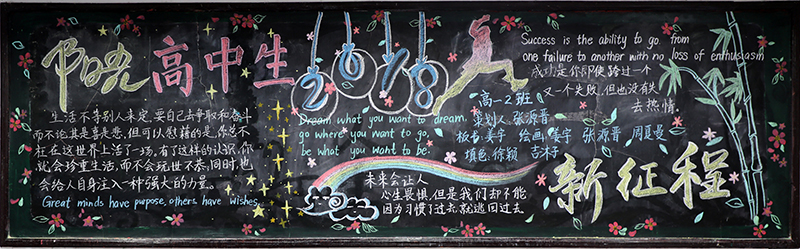 阳光高中生
生活不等别人来定,要自己去争取和奋斗
而不论其是喜是悲,但可以慰藉的是,你总不
枉在这世界上活了一场,有了这样的认识,你
就会珍重生活,而不会玩世不恭,同时,也
会给人自身注入一种强大的力量。
Great minds have purpose, others have wishes.
2018
Dream what you want to dream,
go where you want to go,
be what you want to be.
未来会让人
心生畏惧,但是我们却不能
因为习惯了过去,就逃回过去。
高一2班
策划人 张源晋
板书 姜宇 绘画 姜宇 张源晋 周夏曼
填色 徐颖
Success is the ability to go from
one failure to another with no loss of enthusiasm
成功是你即使跨过一个
又一个失败,但也没有失
去热情.
新征程